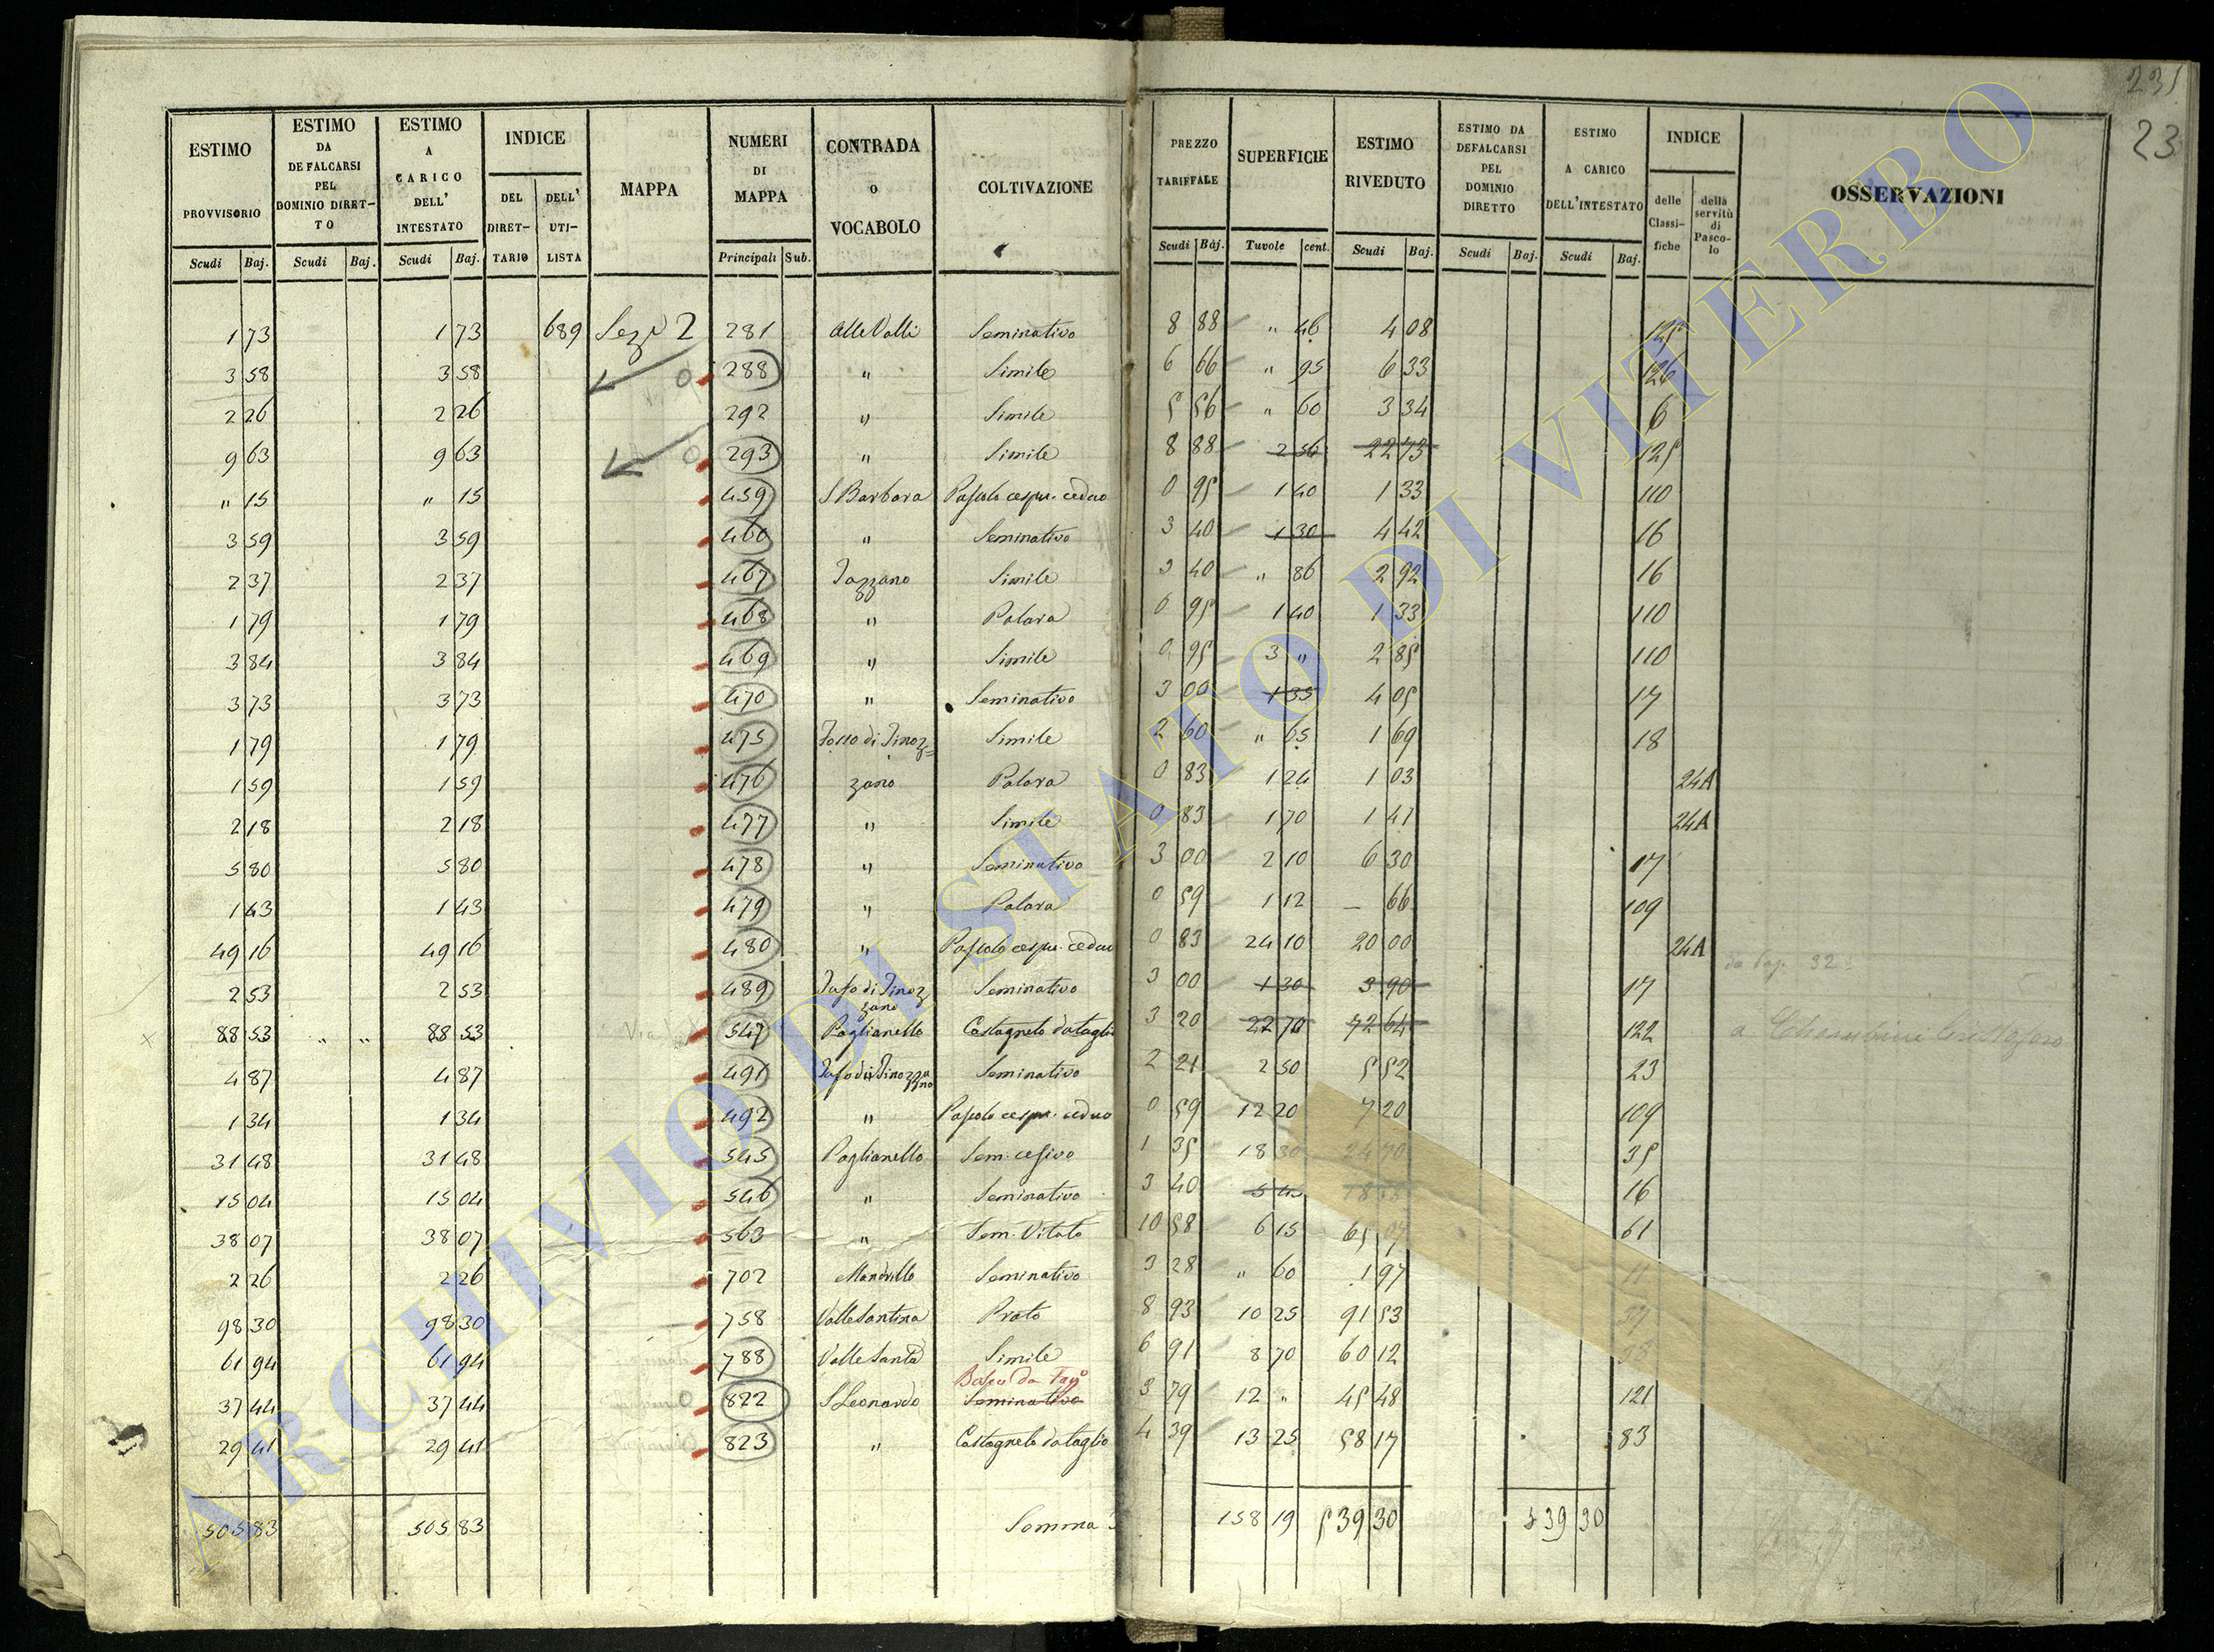 231
23
ESTIMO PROVVISORIO | ESTIMO DA DEFALCARSI PEL DOMINIO DIRET-TO | ESTIMO A CARICO DELL' INTESTATO | INDICE DEL DIRET-TARIO | DELL' UTI-LISTA | MAPPA | NUMERI DI MAPPA | CONTRADA O VOCABOLO | COLTIVAZIONE | PREZZO TARIFFALE | SUPERFICIE | ESTIMO RIVEDUTO | ESTIMO DA DEFALCARSI PEL DOMINIO DIRETTO | ESTIMO A CARICO DELL'INTESTATO | INDICE delle Classi-fiche | della servitù di Pasco-lo | OSSERVAZIONI
Scudi Baj. | Scudi Baj. | Scudi Baj. | Principali Sub. | Scudi Baj. | Tavole cent. | Scudi Baj. | Scudi Baj. | Scudi Baj.
1 73 | 1 73 | 689 | Sez. 2 | 281 | Alle Valli | Seminativo | 8 88 | " 46 | 4 08 | 125
3 58 | 3 58 | 288 | " | Simile | 6 66 | " 95 | 6 33 | 126
2 26 | 2 26 | 292 | " | Simile | 5 56 | " 60 | 3 34 | 6
9 63 | 9 63 | 293 | " | Simile | 8 88 | 2 56 | 22 73 | 125
" 15 | " 15 | 459 | S Barbara | Pascolo cespu. ceduo | 0 95 | 1 40 | 1 33 | 110
3 59 | 3 59 | 460 | " | Seminativo | 3 40 | 1 30 | 4 42 | 16
2 37 | 2 37 | 467 | Simile | 3 40 | " 86 | 2 92 | 16
1 79 | 1 79 | 468 | " | Palara | 0 95 | 1 40 | 1 33 | 110
3 84 | 3 84 | 469 | " | Simile | 0 95 | 3 " | 2 85 | 110
3 73 | 3 73 | 470 | " | Seminativo | 3 00 | 1 35 | 4 05 | 17
1 79 | 1 79 | 475 | Fosso di Pinoz= | Simile | 2 60 | " 65 | 1 69 | 18
1 59 | 1 59 | 476 | zano | Palara | 0 83 | 1 24 | 1 03 | 24A
2 18 | 2 18 | 477 | " | Simile | 0 83 | 1 70 | 1 41 | 24A
5 80 | 5 80 | 478 | " | Seminativo | 3 00 | 2 10 | 6 30 | 17
1 43 | 1 43 | 479 | " | Palara | 0 59 | 1 12 | — 66 | 109
49 16 | 49 16 | 480 | " | Pascolo cespu. ceduo | 0 83 | 24 10 | 20 00 | 24A
2 53 | 2 53 | 489 | Fosso di Pinoz zano | Seminativo | 3 00 | 1 30 | 3 90 | 17 | da Pag. 32
88 53 | " " | 88 53 | 547 | Paglianello | Castagneto da taglio | 3 20 | 22 70 | 72 64 | 122 | a Cherubini Cristoforo
4 87 | 4 87 | 491 | Fosso di Pinozzano | Seminativo | 2 21 | 2 50 | 5 52 | 23
1 34 | 1 34 | 492 | " | Pascolo cespu. ceduo | 0 59 | 12 20 | 7 20 | 109
31 48 | 31 48 | 545 | Paglianello | Sem. cesivo | 1 35 | 18 30 | 24 70 | 35
15 04 | 15 04 | 546 | " | Seminativo | 3 40 | 5 45 | 16
38 07 | 38 07 | 563 | " | Sem. Vitato | 10 58 | 6 15 | 65 07 | 61
2 26 | 2 26 | 702 | Mandrillo | Seminativo | 3 28 | " 60 | 1 97 | 11
98 30 | 98 30 | 758 | Valle Santina | Prato | 8 93 | 10 25 | 91 53 | 37
61 94 | 61 94 | 788 | Valle Santa | Simile | 6 91 | 8 70 | 60 12 | 38
Bosco da Tagº
37 44 | 37 44 | 822 | S Leonardo | Seminativo | 3 79 | 12 " | 45 48 | 121
29 41 | 29 41 | 823 | " | Castagneto da taglio | 4 39 | 13 25 | 58 17 | 83
505 83 | 505 83 | Somma | 158 19 | 539 30 | 539 30
ARCHIVIO DI STATO DI VITERBO